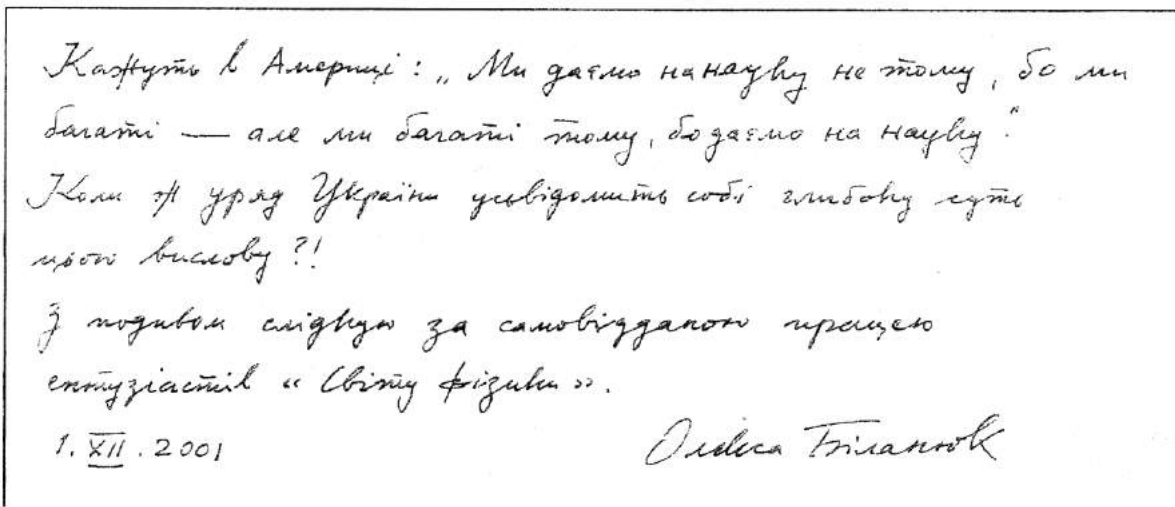 Кажуть в Америці: „Ми даємо на науку не тому, бо ми
багаті — але ми багаті тому, бо даємо на науку".
Коли ж уряд України усвідомить собі глибоку суть
цього вислову?!
З подивом слідкую за самовідданою працею
ентузіастів «Світу фізики».
1. XII. 2001 Олекса Біланюк